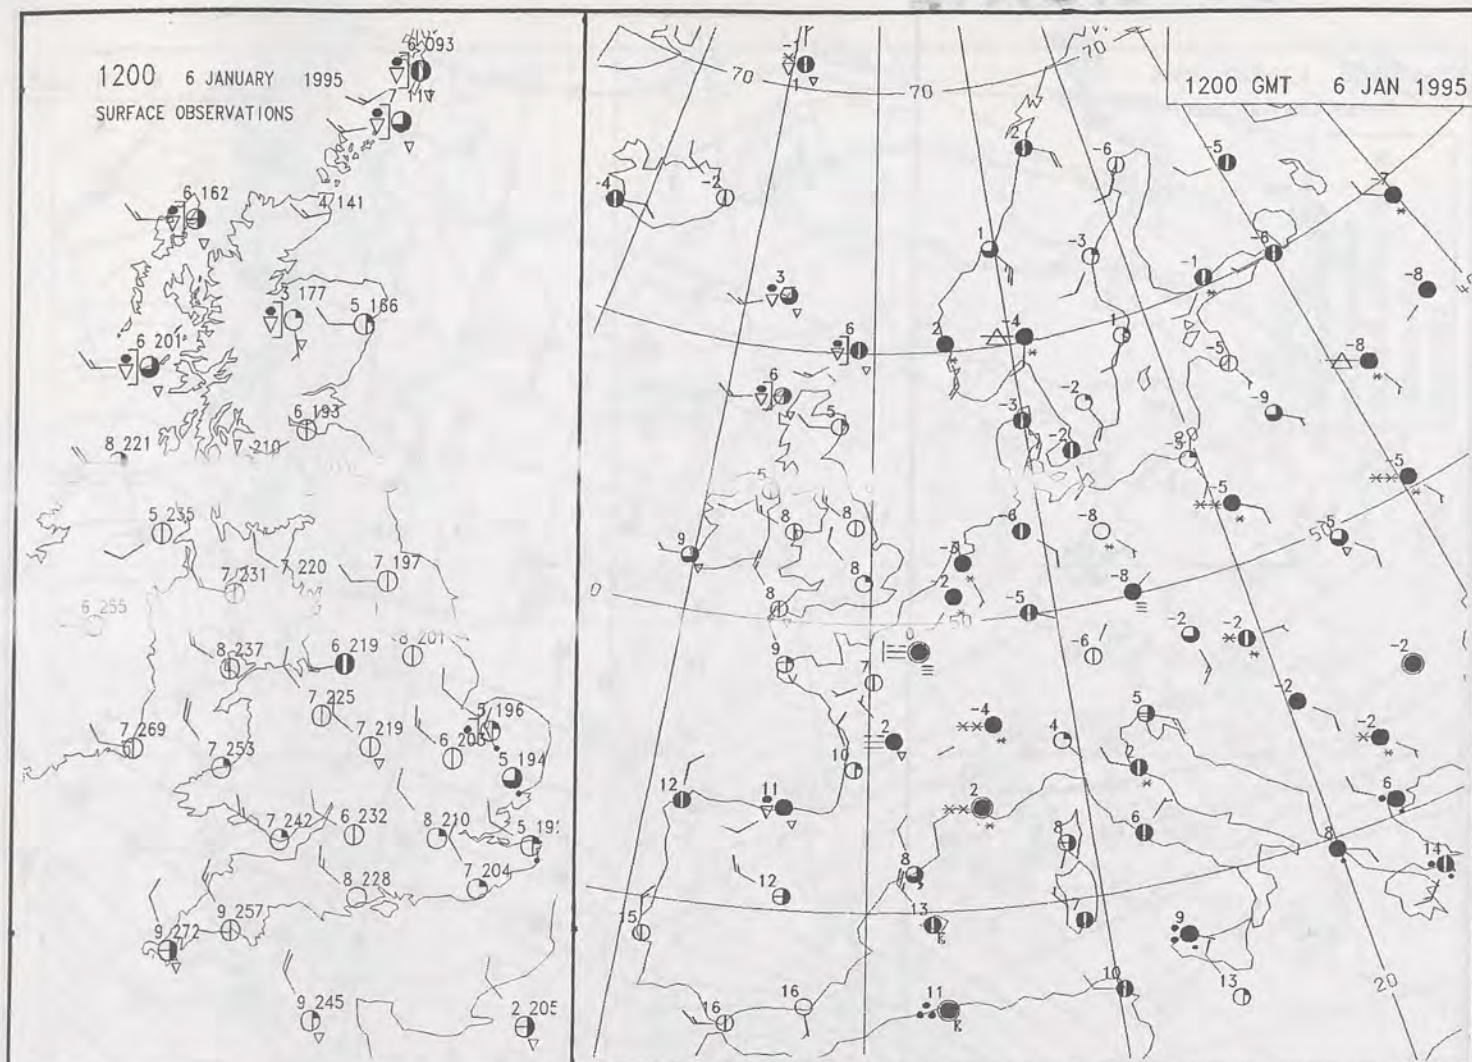 1200 6 JANUARY 1995
SURFACE OBSERVATIONS
6 093
7
6 162
4 141
3 177
5 166
6 201
6 193
8 221
210
5 235
7 231
7 220
7 197
6 255
8 237
6 219
8 201
7 225
7 219
5 196
7 269
7 253
5 194
7 242
6 232
8 210
7 204
8 228
9 257
9 272
9 245
2 205
1200 GMT 6 JAN 1995
70
70
70
-1
1
2
-6
-5
-7
-4
-2
1
-3
-1
-6
-8
3
6
2
-4
1
-5
-8
6
5
-3
-2
-2
-9
-3
-5
-5
5
8
8
9
-6
-8
-5
50
0
8
8
-2
-5
-8
50
9
7
0
-6
-2
-2
-2
-4
2
4
5
-2
-2
10
12
11
2
2
6
8
6
8
14
12
8
15
13
9
16
16
11
10
13
20